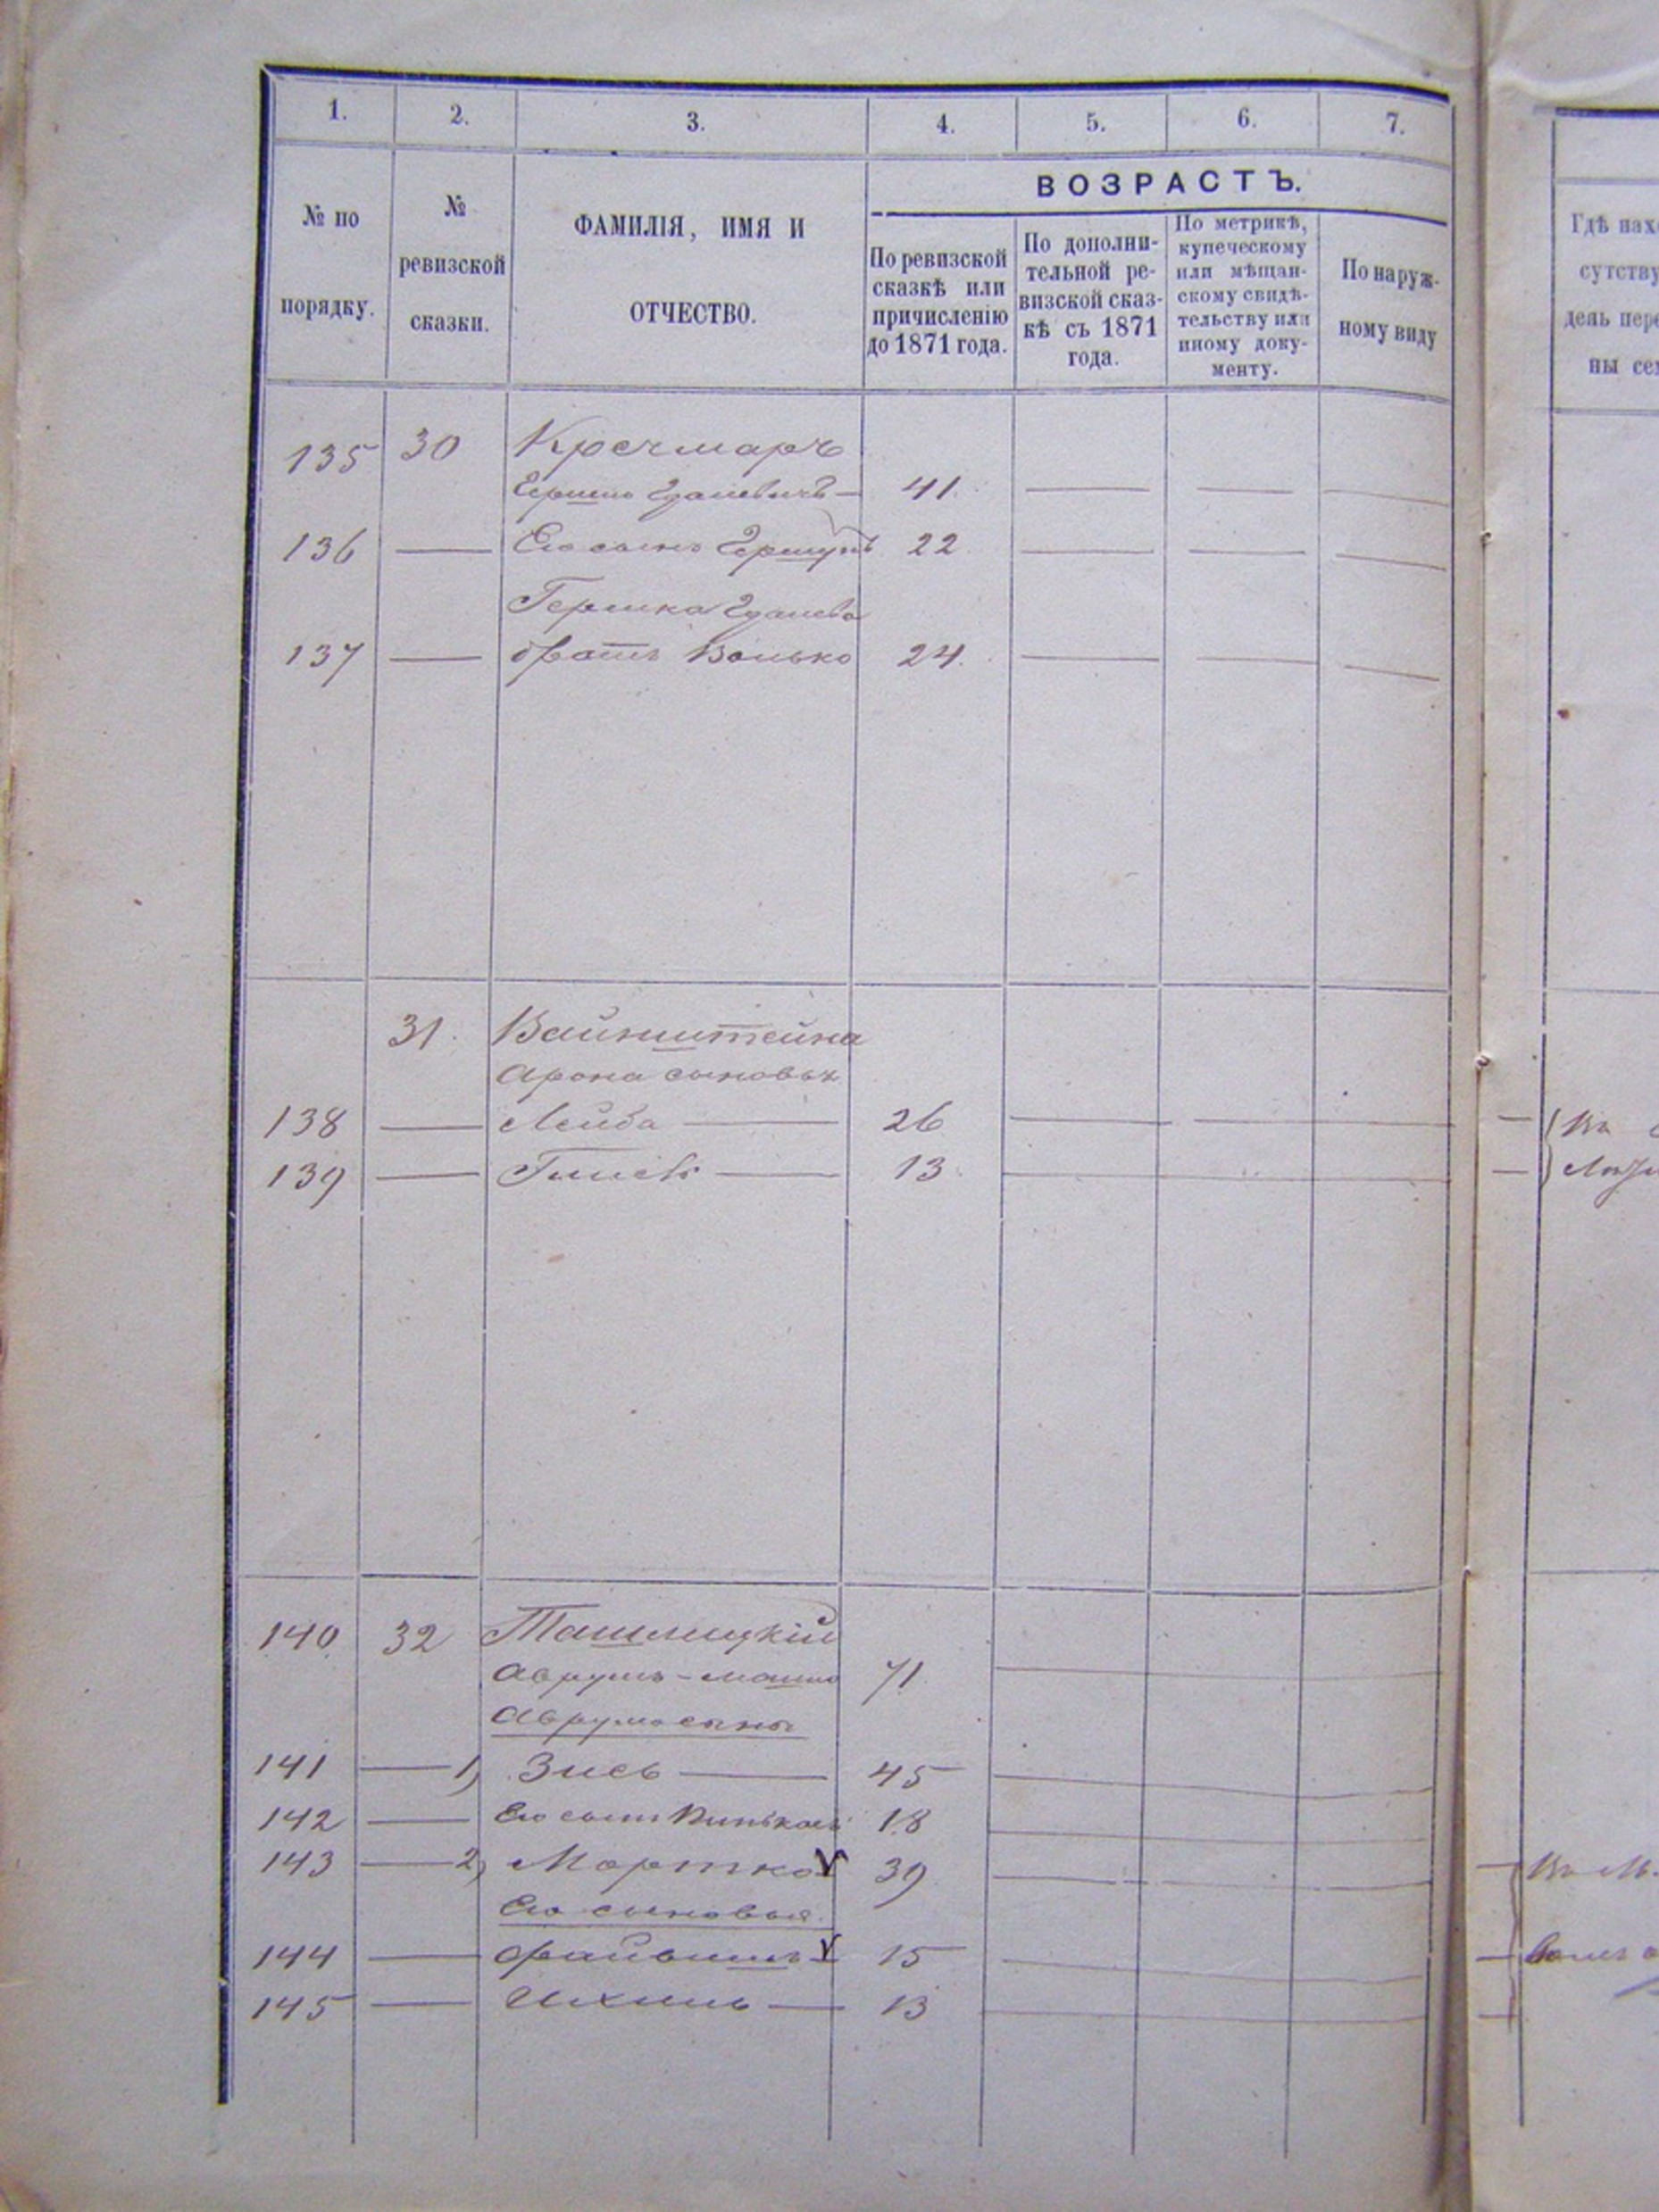 1. 2. 3. 4. 5. 6. 7.
№ по порядку.
№ ревизской сказки.
ФАМИЛІЯ, ИМЯ И ОТЧЕСТВО.
ВОЗРАСТЪ.
По ревизской сказкѣ или причисленію до 1871 года.
По дополни-
тельной ре-
визской сказ-
кѣ съ 1871
года.
По метрикѣ,
купеческому
или мѣщан-
скому свидѣ-
тельству или
иному доку-
менту.
По наруж-
ному виду
Гдѣ
день
135 30 Кречмаръ
Гершко Гдалевичъ — 41. — — —
136 — Его сынъ 22 — — —
Гершка Гдалева
137 — братъ Волько 24. — — —
31. Вайнштейна
Арона сыновья
138 — Лейба — 26 — —
139 — — 13 —
140 32 Ташлицкій
Аврумъ-Мошко 71. —
Аврума сыны
141 — 1, Зись — 45 —
142 — Его сынъ 18 —
143 — 2, Мортко 39 —
Его сыновья
144 — Файвишъ 15 —
145 — Ихиль — 13 —